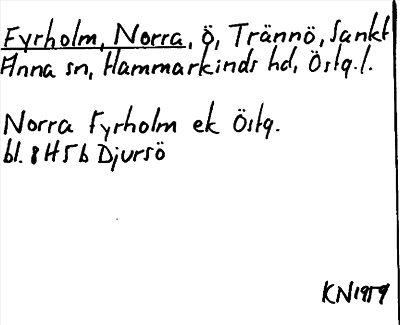 Fyrholm, Norra, ö, Trännö, Sankt
Anna sn, Hammarkinds hd, Östg.l.
Norra Fyrholm ek Östg.
bl. 8H5b Djursö
KN1959